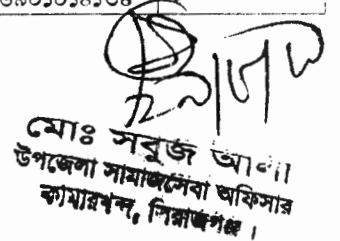 মোঃ সবুজ আলী
উপজেলা সমাজসেবা অফিসার
কামারখন্দ, সিরাজগঞ্জ।